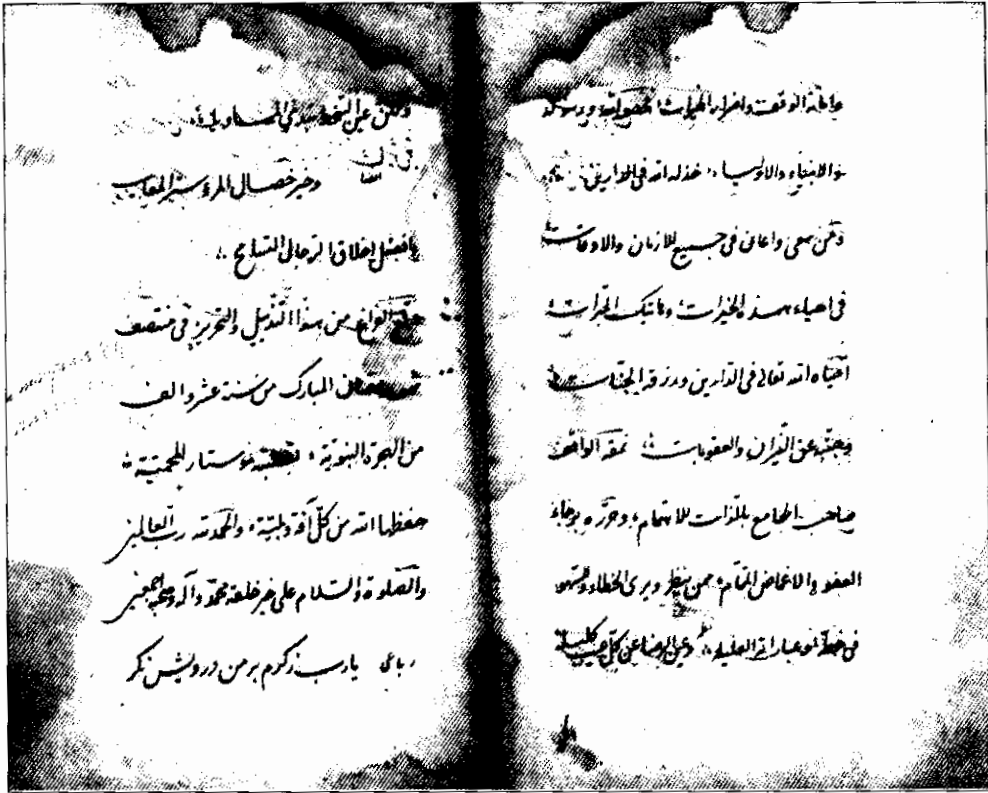 واضرار الخيرات
والانبياء والاولياء خذله الله في الدارين
ومن سعى واعان في جميع الازمان والاوقات
في احياء هذه الخيرات وهاتيك المبرات
احياه الله تعالى في الدارين ورزقه الجنات
وجنبه عن النيران والعقوبات نمقه الواقف
صاحب الجامع بالذات للاهتمام وحرره برجاء
العفو والاغماض التام ممن ينظر ويرى الخطاء والسهو
في عباراته العليلة وعين الرضا عن كل عيب كليلة
ولكن عين السخط تبدي المساويا
وخير خصال المرء ستر المعايب
وافضل اخلاق الرجال التسامح
الفراغ من هذا التذييل والتحرير في منتصف
المبارك من سنة عشر والف
من الهجرة النبوية موستار المحمية
حفظها الله من كل آفة وبلية والحمد لله رب العالمين
والصلوة والسلام على خير خلقه محمد وآله وصحبه اجمعين
رباعى يا رب ز كرم بر من درويش نكر